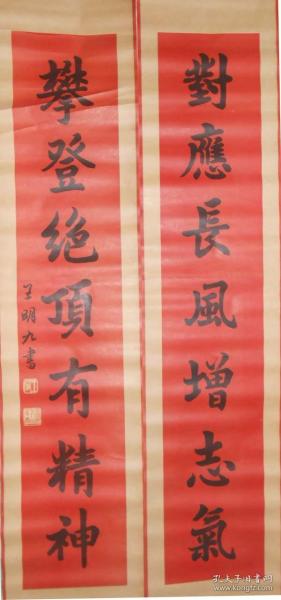 對應長風增志氣
攀登绝頂有精神
王明九書
孔夫子旧书网
www.kongfz.com